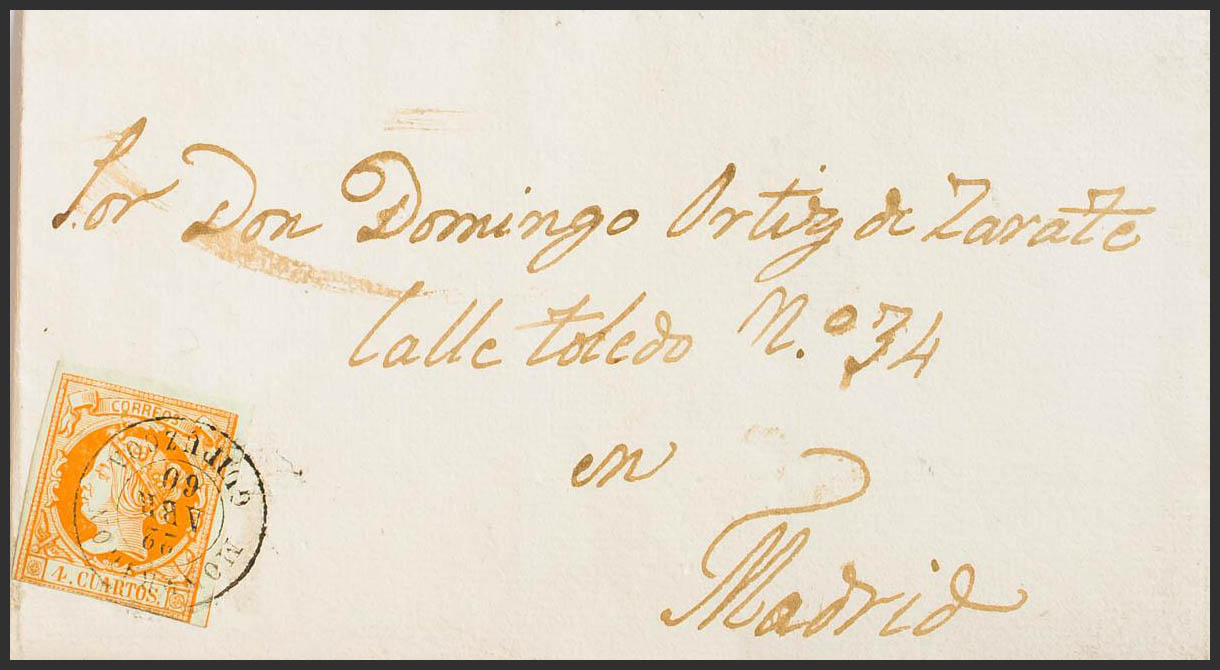 Sor Don Domingo Ortiz de Zarate
Calle toledo N.º 34
en
Madrid
CORREOS
4. CUARTOS.
GUIPUZCOA
22
ABR
60